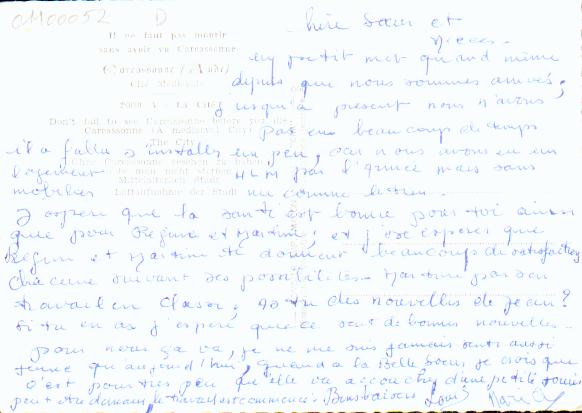 01100052 D
Il ne faut pas mourir
sans avoir vu Carcassonne
Carcassonne (Aude)
Cité Médiévale
2009 A - La Cité
Don't fail to see Carcassonne before you die:
Carcassonne (A mediaeval City)
The City
Ohne Carcassonne gesehen zu haben
Mittelalterliche Stadt
Luftaufnahme der Stadt
Chère Sœur et
Nièces.
un petit mot quand même
depuis que nous sommes arrivés;
jusqu'à présent nous n'avons,
pas eu beaucoup de temps
il a fallu s'installer un peu, car nous avons eu un
logement HLM par l'agence mais sans
mobilier nu comme
J'espère que la santé est bonne pour toi ainsi
que pour Régine et Martine; et j'ose espérer que
Régine et Martine te donnent beaucoup de satisfaction
chacune suivant ses possibilités. Martine par son
travail en classe; as-tu des nouvelles de Jean?
si tu en as j'espère que ce sont de bonnes nouvelles.
pour nous ça va, je ne me suis jamais senti aussi
jeune qu'aujourd'hui, quand à la Belle Sœur je crois que
c'est pour très peu qu'elle va accoucher d'une petite
peut être demain, le travail est commencé. Bons baisers Louis